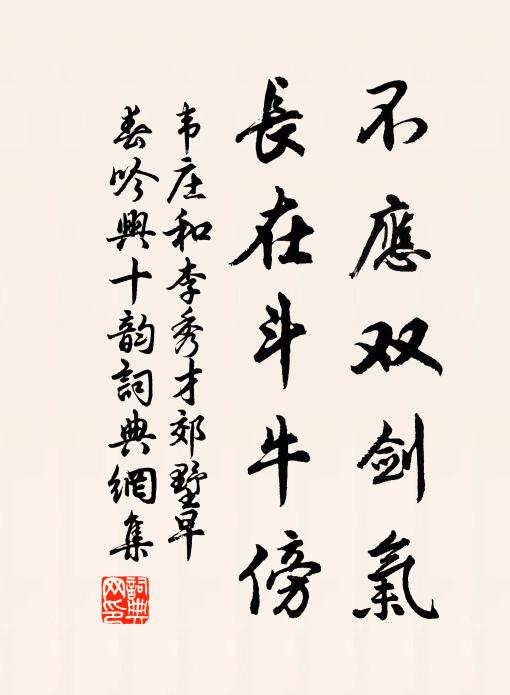 不應双剑氣
長在斗牛傍
韦庄和李秀才郊墅早
春吟興十韵詞典網集